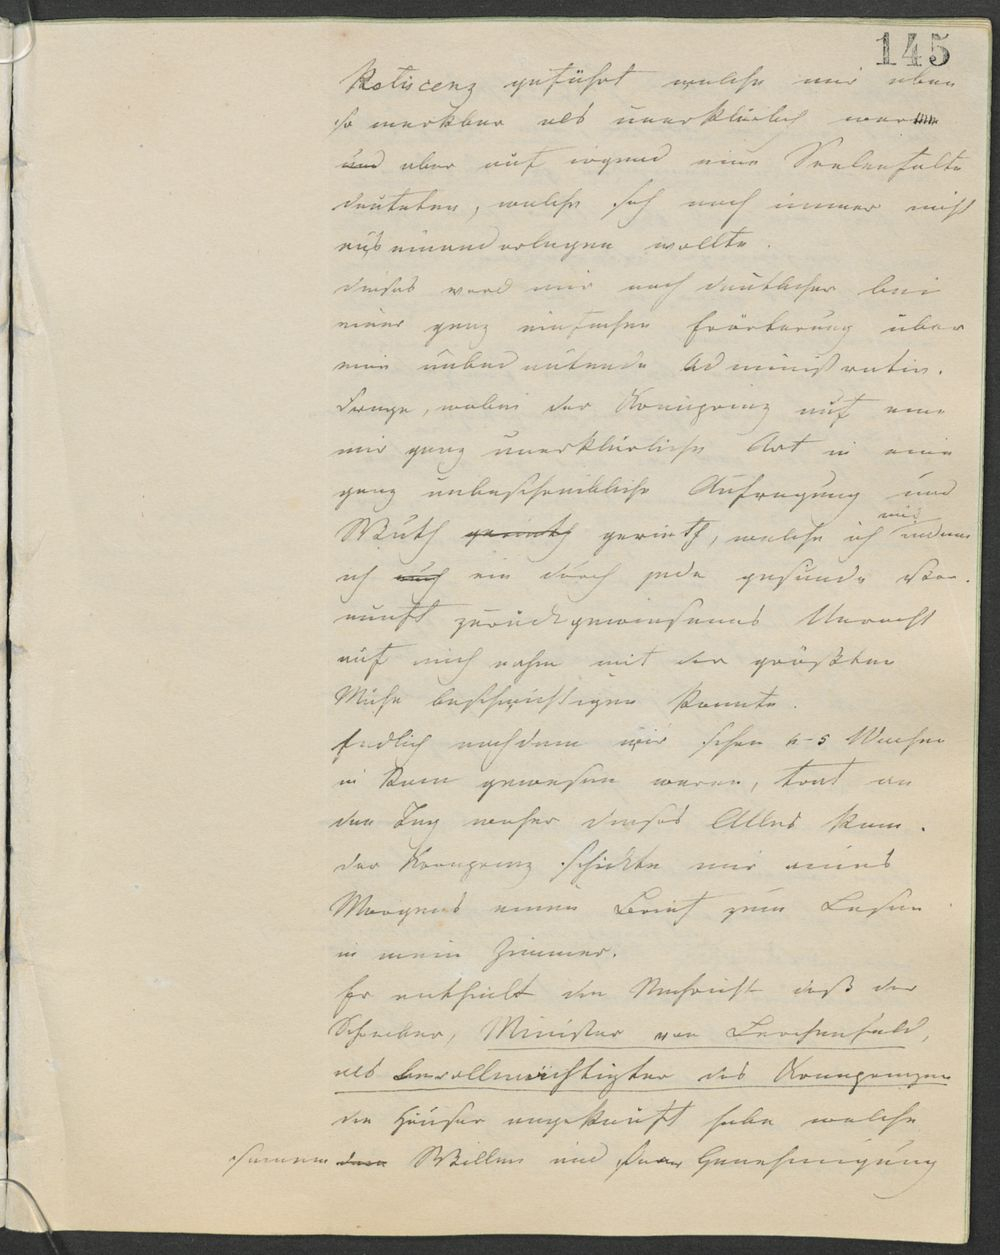 145
Reticenz geführt welche mir eben
so merkbar als unerklärlich war
und aber auf irgend eine Seelenfalte
deuteten, welche sich noch immer nicht
auseinanderlegen wollte.
dieses ward mir noch deutlicher bei
einer ganz einfachen Erörterung über
eine unbedeutende Administrativ-
Frage, wobei der Kronprinz auf eine
mir ganz unerklärliche Art in eine
ganz unbeschreibliche Aufregung und
Wuth gerieth gerieth, welche ich nur indem
ich auch ein durch jede gesunde Ver-
nunft zurückgewiesenes Unrecht
auf mich nahm mit der größten
Mühe beschwichtigen konnte.
Endlich nachdem wir schon 4-5 Wochen
in Rom gewesen waren, trat an
den Tag woher dieses Alles kam.
der Kronprinz schickte mir eines
Morgens einen Brief zum Lesen
in mein Zimmer.
Er enthielt die Nachricht daß der
Schreiber, Minister von Lerchenfeld,
als Bevollmächtigter des Kronprinzen
die Häuser angekauft habe welche
seinem dem Willen und seiner Genehmigung